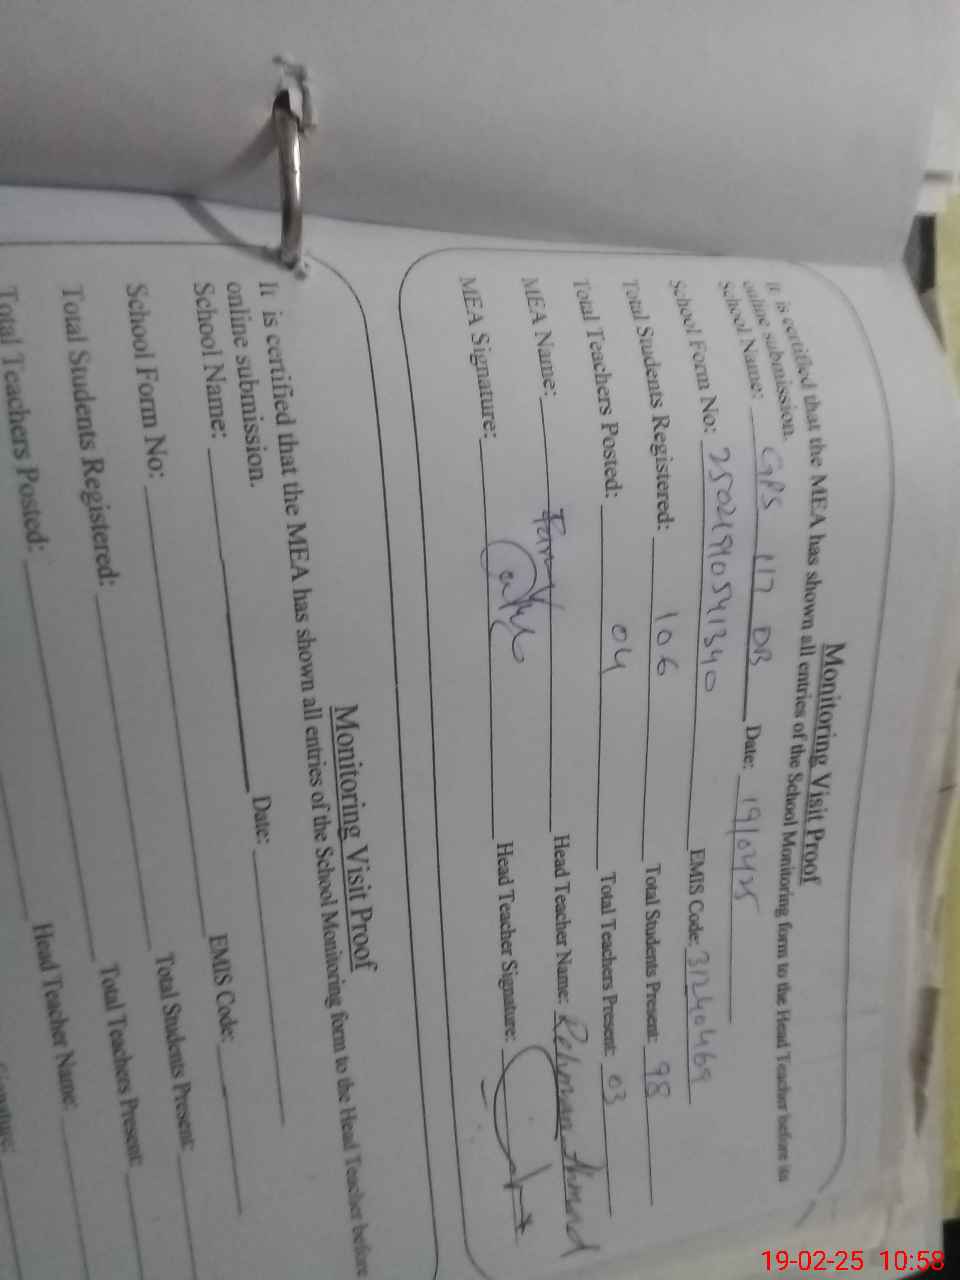 Monitoring Visit Proof
It is certified that the MEA has shown all entries of the School Monitoring form to the Head Teacher before its
online submission.
School Name: GPS 117 DB Date: 19/02/25
School Form No: 25021910541340 EMIS Code: 31240469
Total Students Registered: 106 Total Students Present: 98
Total Teachers Posted: 04 Total Teachers Present: 03
MEA Name: Head Teacher Name: Rehman Ahmad
MEA Signature: Head Teacher Signature:
Monitoring Visit Proof
It is certified that the MEA has shown all entries of the School Monitoring form to the Head Teacher before
online submission.
School Name: Date:
School Form No: EMIS Code:
Total Students Registered: Total Students Present:
Total Teachers Posted: Total Teachers Present:
Head Teacher Name:
19-02-25 10:58